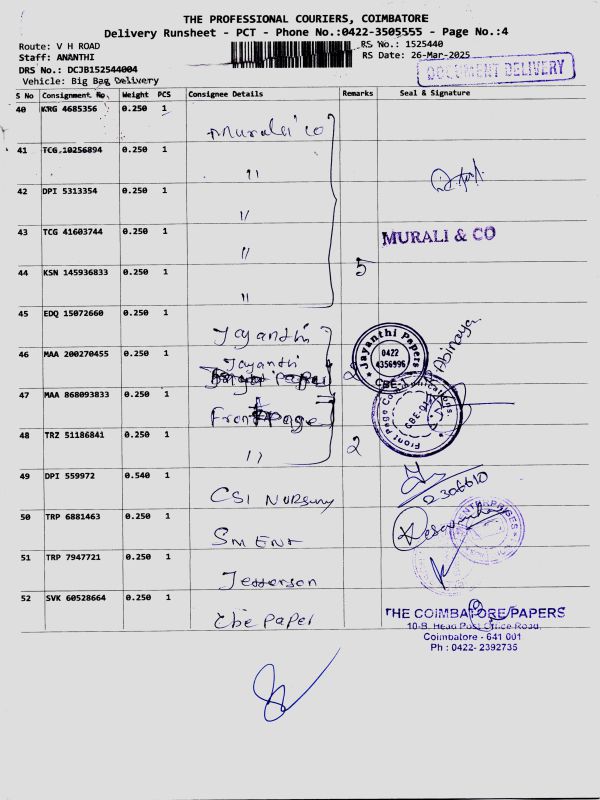 THE PROFESSIONAL COURIERS, COIMBATORE
Delivery Runsheet - PCT - Phone No.:0422-3505555 - Page No.:4
Route: V H ROAD
RS No.: 1525440
Staff: ANANTHI
RS Date: 26-Mar-2025
DRS No.: DCJB152544004
DOCUMENT DELIVERY
Vehicle: Big Bag Delivery
S No Consignment No. Weight PCS Consignee Details Remarks Seal & Signature
40 KRG 4685356 0.250 1
Murali' co
41 TCG 10256894 0.250 1
"
42 DPI 5313354 0.250 1
"
43 TCG 41603744 0.250 1
" MURALI & CO
44 KSN 145936833 0.250 1 5
"
45 EDQ 15072660 0.250 1
Jayanthi
46 MAA 200270455 0.250 1
Jayanthi 2
Jayanthi Papers
0422
4356996
CBE-1
Abinaya
47 MAA 868093833 0.250 1
Front page
Front Page Communications
48 TRZ 51186841 0.250 1
" 2
49 DPI 559972 0.540 1
CSI Nursury
50 TRP 6881463 0.250 1
SM Ent
ENTERPRISES
51 TRP 7947721 0.250 1
Jefferson
52 SVK 60528664 0.250 1
Cbe paper
THE COIMBATORE PAPERS
10-B, Head Post Office Road,
Coimbatore - 641 001
Ph : 0422- 2392735